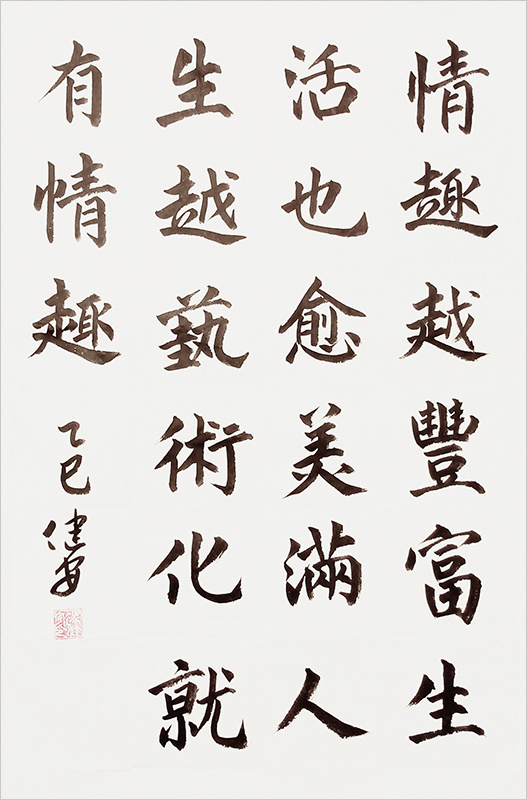 情趣越豐富生
活也愈美滿人
生越藝術化就
有情趣
乙巳健安